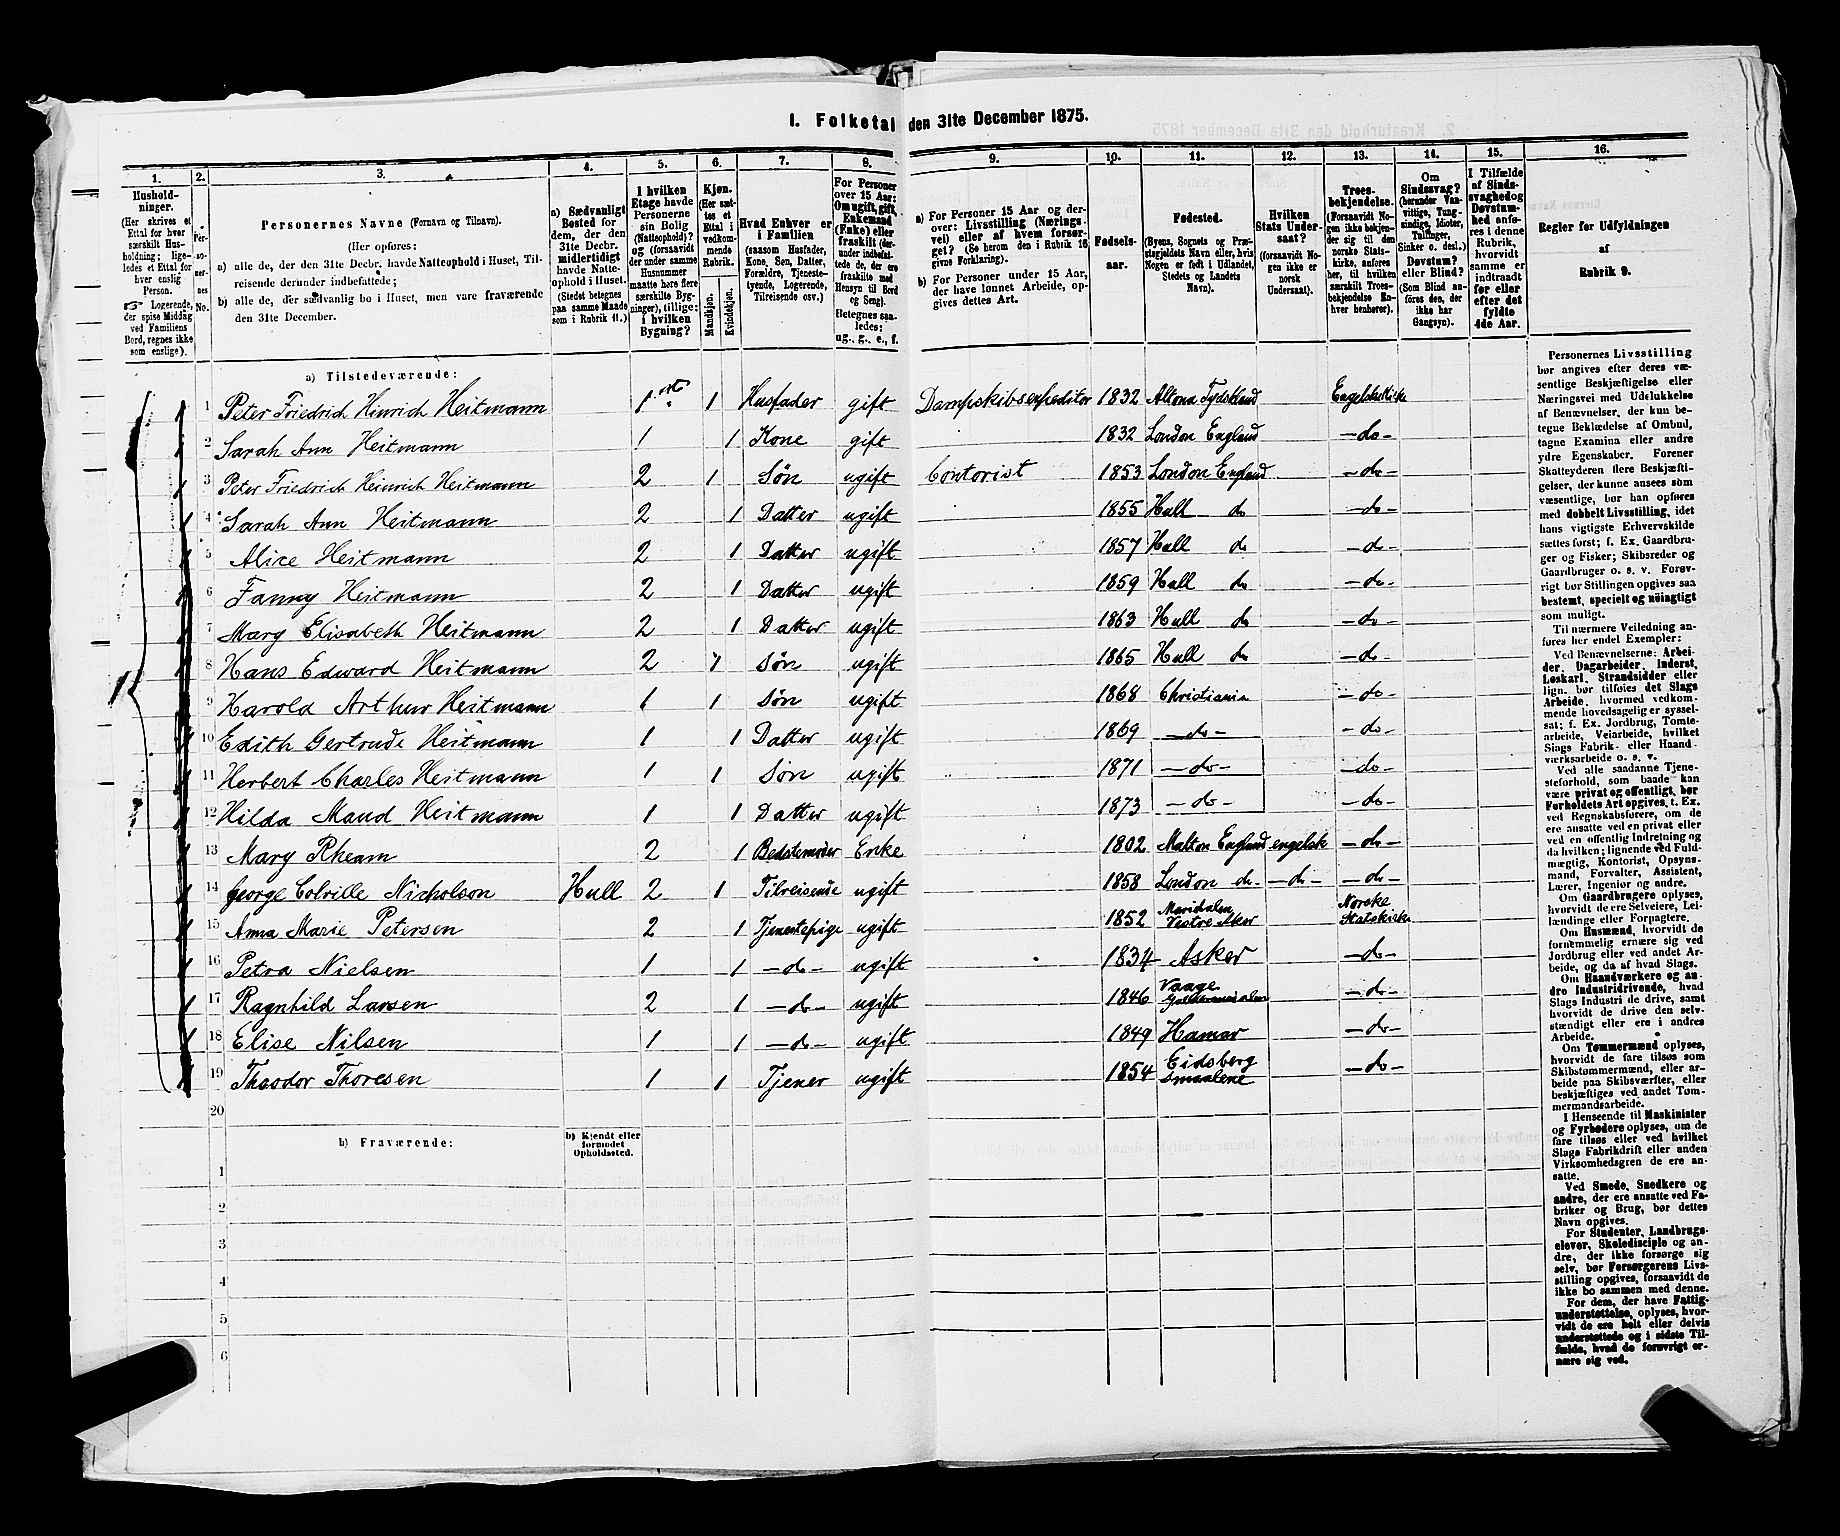 I. Folketal den 31te December 1875.
1. 2. 3. 4. 5. 6. 7. 8. 9. 10. 11. 12. 13. 14. 15. 16.
Hushold-
ninger.
(Her skrives et
Ettal for hver
særskilt Hus-
holdning; lige-
ledes et Ettal for
hver enslig
Person.
☞ Logerende,
der spise Middag
ved Familiens
Bord, regnes ikke
som enslige).
Per-
so-
ner-
nes
No.
Personernes Navne (Fornavn og Tilnavn).
(Her opføres:
a) alle de, der den 31te Decbr. havde Natteophold i Huset, Til-
reisende derunder indbefattede;
b) alle de, der sædvanlig bo i Huset, men vare fraværende
den 31te December.
a) Sædvanligt
Bosted for
dem, der den
31te Decbr.
midlertidigt
havde Natte-
ophold i Huset.
(Stedet betegnes
paa samme Maade
som i Rubrik 11.)
I hvilken
Etage havde
Personerne
sin Bolig
(Natteophold)?
og (forsaavidt
der under samme
Husnummer
maatte høre flere
særskilte Byg-
ninger), tillige:
i hvilken
Bygning?
Kjøn.
(Her sæt-
tes et
Ettal i
vedkom-
mende
Rubrik.
Mandkjøn.
Kvindekjøn.
Hvad Enhver er
i Familien
(saasom Husfader,
Kone, Søn, Datter,
Forældre, Tjeneste-
tyende, Logerende,
Tilreisende osv.)
For Personer
over 15 Aar:
Om ugift, gift,
Enkemand
(Enke) eller
fraskilt (der-
under indbefat-
tede de, der ere
fraskilte med
Hensyn til Bord
og Seng).
Betegnes saa-
ledes:
ug., g., e., f.
a) For Personer 15 Aar og der-
over: Livsstilling (Nærings-
vei) eller af hvem forsør-
get? (Se herom den i Rubrik 16
givne Forklaring).
b) For Personer under 15 Aar,
der have lønnet Arbeide, op-
gives dettes Art.
Fødsels-
aar.
Fødested.
(Byens, Sognets og Præ-
stegjeldets Navn eller, hvis
Nogen er født i Udlandet,
Stedets og Landets
Navn).
Hvilken
Stats Under-
saat?
(forsaavidt No-
gen ikke er
norsk
Undersaat).
Troes-
bekjendelse.
(Forsaavidt No-
gen ikke bekjen-
der sig til den
norske Stats-
kirke, anføres
her, til hvilken
særskilt Troes-
bekjendelse En-
hver henhører).
Om
Sindssvag?
(herunder Van-
vittige, Tung-
sindige, Idioter,
Tullinger,
Sinker o. desl.)
Døvstum?
eller Blind?
(Som Blind an-
føres den, der
ikke har
Gangsyn).
I Tilfælde
af Sinds-
svaghed og
Døvstum-
hed anfø-
res i denne
Rubrik,
hvorvidt
samme er
indtraadt
før eller
efter det
fyldte
4de Aar.
Regler for Udfyldningen
af
Rubrik 9.
a) Tilstedeværende:
1 Peter Friedrich Hinrich Heitmann 1ste 1 Husfader gift Dampskibsexpeditør 1832 Altona Tydskland Engelske Kirke
2 Sarah Ann Heitmann 1 1 Kone gift 1832 London England -do-
3 Peter Friedrich Heinrich Heitmann 2 1 Søn ugift Contorist 1853 London England -do-
4 Sarah Ann Heitmann 2 1 Datter ugift 1855 Hull do -do-
5 Alice Heitmann 2 1 Datter ugift 1857 Hull do -do-
6 Fanny Heitmann 2 1 Datter ugift 1859 Hull do -do-
7 Mary Elisabeth Heitmann 2 1 Datter ugift 1863 Hull do -do-
8 Hans Edward Heitmann 2 1 Søn ugift 1865 Hull do -do-
9 Harold Arthur Heitmann 1 1 Søn ugift 1868 Christiania -do-
10 Edith Gertrude Heitmann 1 1 Datter ugift 1869 -do- -do-
11 Herbert Charles Heitmann 1 1 Søn ugift 1871 -do- -do-
12 Hilda Maud Heitmann 1 1 Datter ugift 1873 -do- -do-
13 Mary Rheam 2 1 Bedstemoder Enke 1802 Malton England engelsk -do-
14 George Colville Nicholson Hull 2 1 Tilreisende ugift 1858 London do- -do- -do-
15 Anna Marie Petersen 2 1 Tjenestepige ugift 1852 Maridalen Vestre Aker Norske Statskirke
16 Petra Nielsen 1 1 -do- ugift 1834 Asker -do-
17 Ragnhild Larsen 2 1 -do- ugift 1846 Vaage -do-
18 Elise Nilsen 1 1 -do- ugift 1849 Hamar -do-
19 Theodor Thoresen 1 1 Tjener ugift 1854 Eidsberg Smaalene -do-
20
b) Fraværende:
b) Kjendt eller
formodet
Opholdssted.
1
2
3
4
5
6
Personernes Livsstilling
bør angives efter deres væ-
sentlige Beskjæftigelse eller
Næringsvei med Udelukkelse
af Benævnelser, der kun be-
tegne Beklædelse af Ombud,
tagne Examina eller andre
ydre Egenskaber. Forener
Skatteyderen flere Beskjæfti-
gelser, der kunne ansees som
væsentlige, bør han opføres
med dobbelt Livsstilling, idet
hans vigtigste Erhvervskilde
sættes først; f. Ex. Gaardbru-
ger og Fisker; Skibsreder og
Gaardbruger o. s. v. Forøv-
rigt bør Stillingen opgives saa
bestemt, specielt og nøiagtigt
som muligt.
Til nærmere Veiledning an-
føres her endel Exempler:
Ved Benævnelserne: Arbei-
der, Dagarbeider, Inderst,
Løskarl, Strandsidder eller
lign. bør tilføies det Slags
Arbeide, hvormed vedkom-
mende hovedsagelig er syssel-
sat; f. Ex. Jordbrug, Tomte-
arbeide, Veiarbeide, hvilket
Slags Fabrik- eller Haand-
værksarbeide o. s. v.
Ved alle saadanne Tjene-
steforhold, som baade kan
være privat og offentligt, bør
Forholdets Art opgives, t. Ex.
ved Regnskabsførere, om de
ere ansatte ved en privat eller
ved en offentlig Indretning og
da hvilken; lignende ved Fuld-
mægtig, Kontorist, Opsyns-
mand, Forvalter, Assistent,
Lærer, Ingeniør og andre.
Om Gaardbrugere oplyses,
hvorvidt de ere Selveiere, Lei-
lændinge eller Forpagtere.
Om Husmænd, hvorvidt de
fornemmelig ernære sig ved
Jordbrug eller ved andet Ar-
beide, og da af hvad Slags.
Om Haandværkere og an-
dre Industridrivende, hvad
Slags Industri de drive, samt
hvorvidt de drive den selv-
stændigt eller ere i andres
Arbeide.
Om Tømmermænd oplyses,
hvorvidt de fare tilsøs som
Skibstømmermænd, eller ar-
beide paa Skibsværfter, eller
beskjæftiges ved andet Tøm-
mermandsarbeide.
I Henseende til Maskinister
og Fyrbødere oplyses, om de
fare tilsøs eller ved hvilket
Slags Fabrikdrift eller anden
Virksomhedsgren de ere an-
satte.
Ved Smede, Snedkere og
andre, der ere ansatte ved Fa-
briker og Brug, bør dettes
Navn opgives.
For Studenter, Landbrugs-
elever, Skoledisciple og an-
dre, der ikke forsørge sig
selv, bør Forsørgerens Livs-
stilling opgives, forsaavidt de
ikke bo sammen med denne.
For dem, der have Fattig-
understøttelse, oplyses, hvor-
vidt de ere helt eller delvis
understøttede og i sidste Til-
fælde, hvad de forøvrigt er-
nære sig ved.